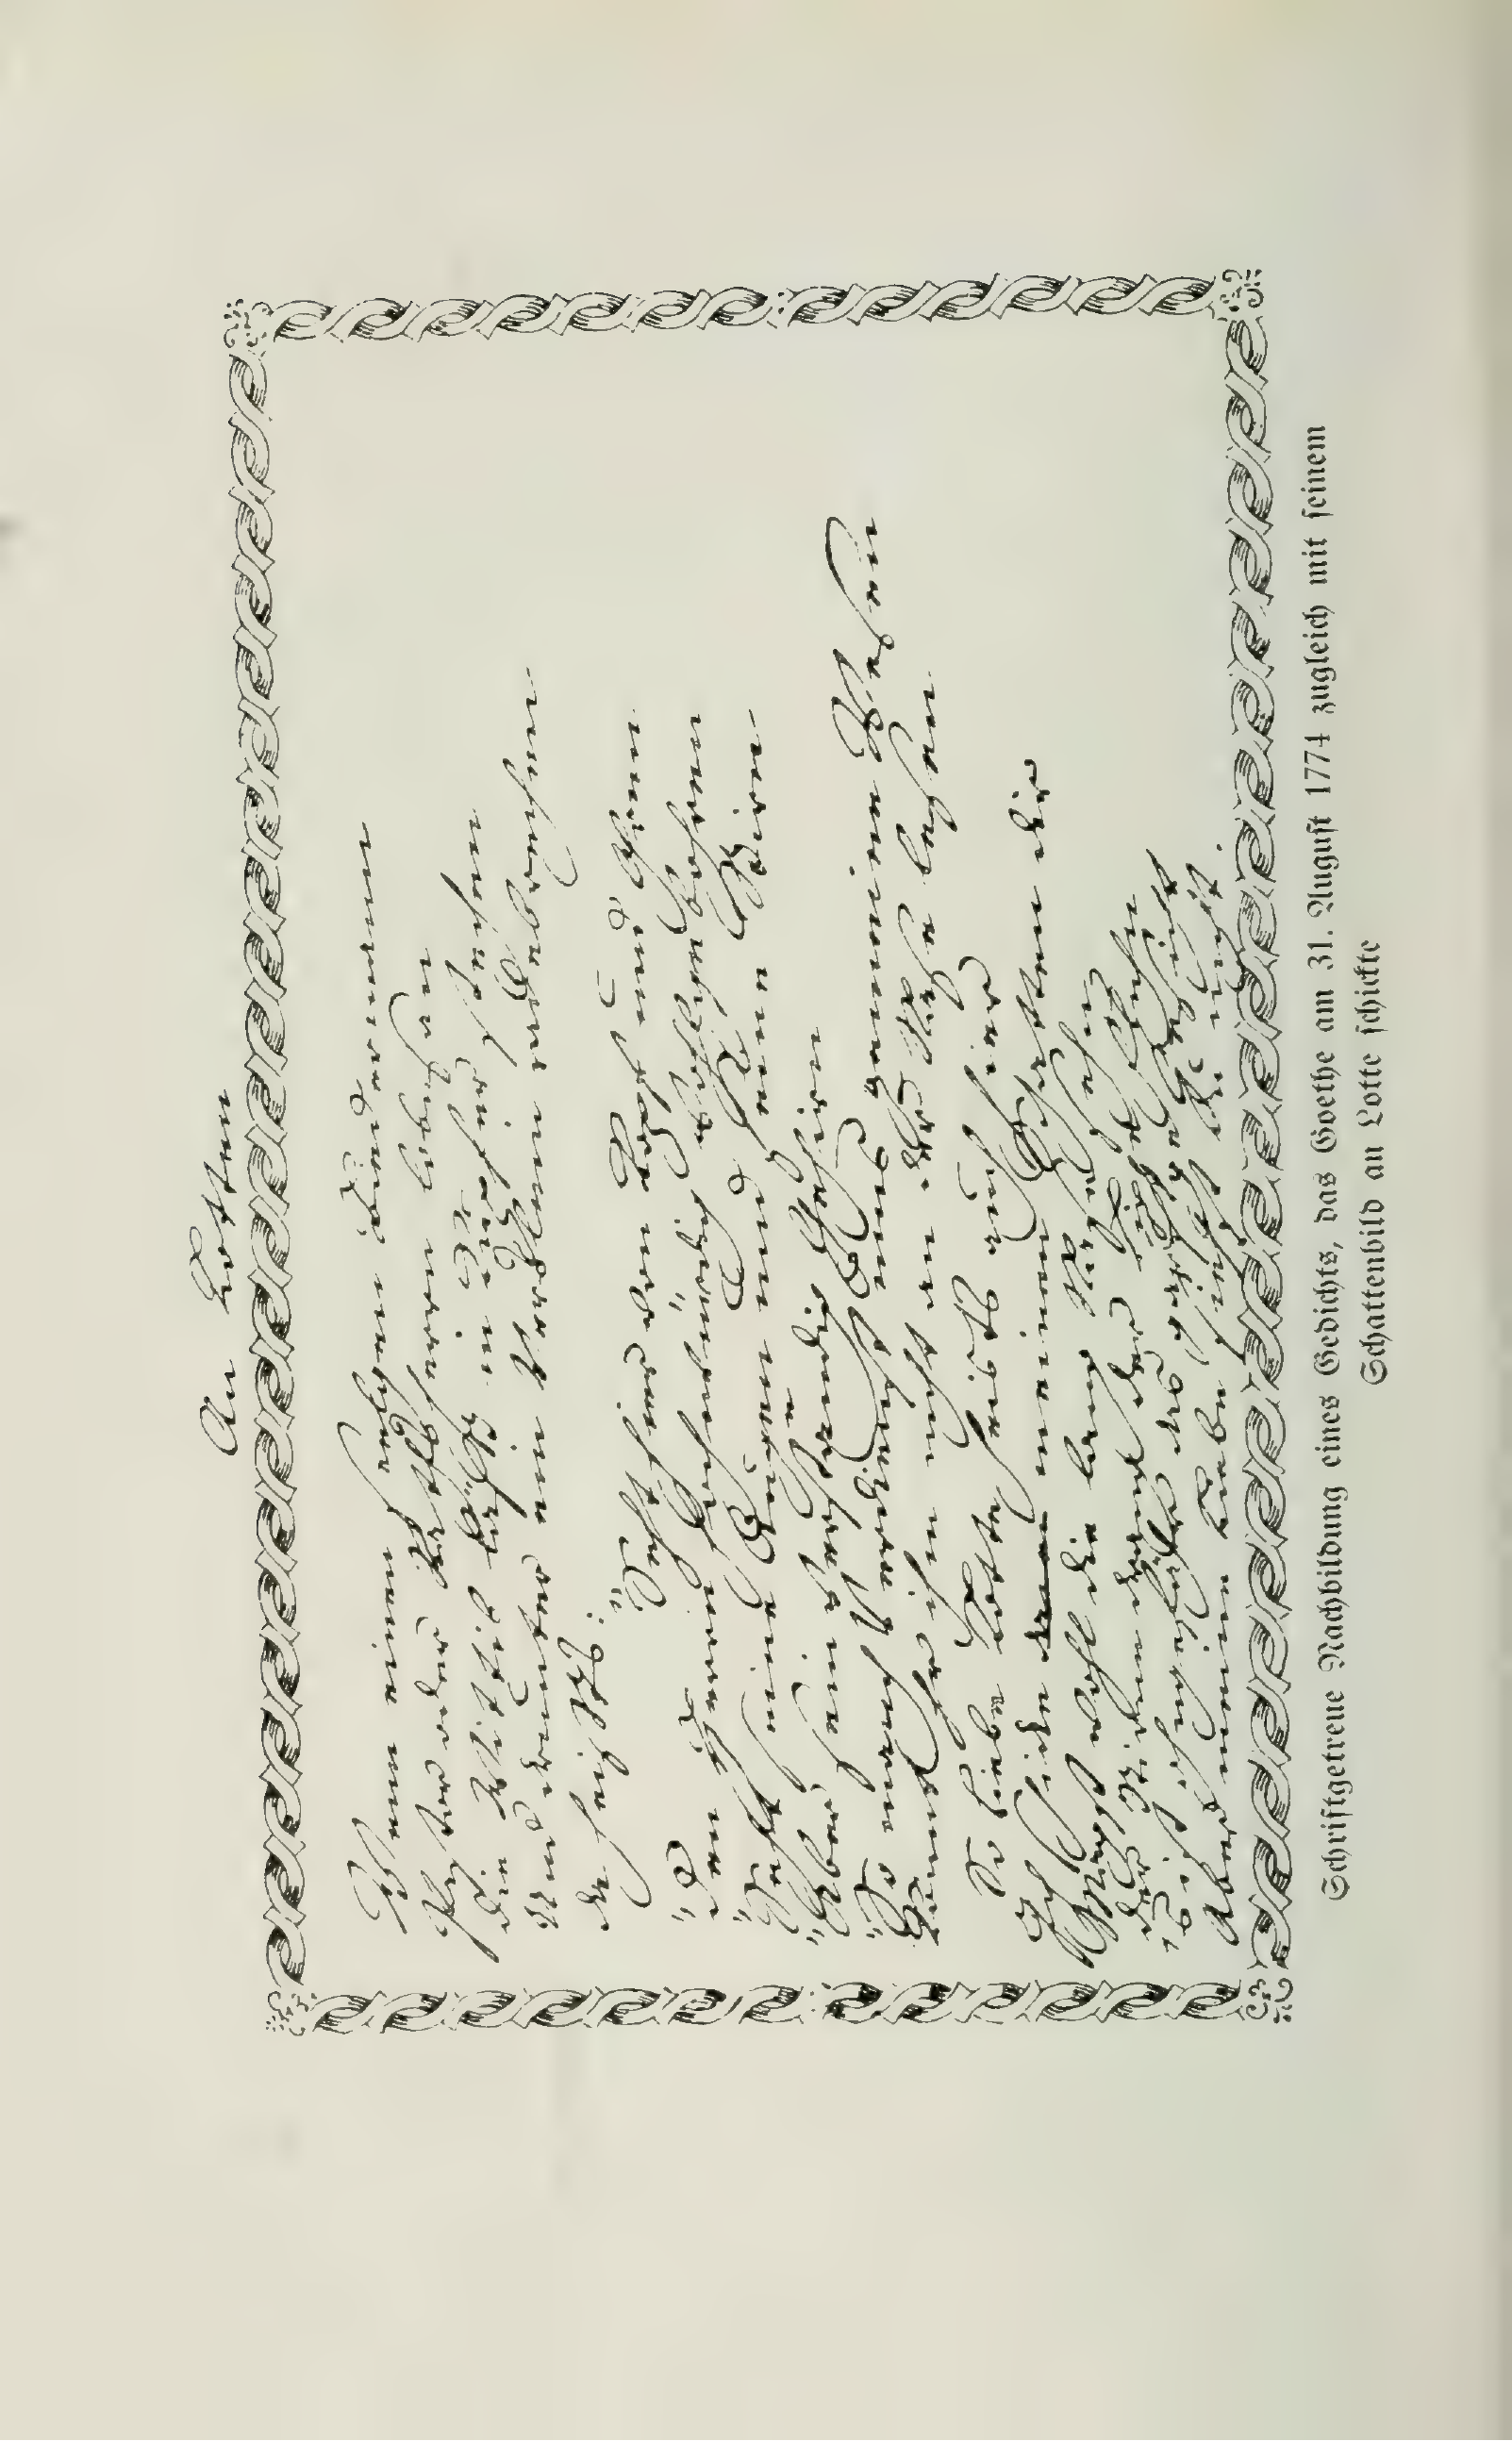 An Lotten
Wenn einen seelgen Biedermann
Pastor oder Rathsherrn lobesan
Die Wittib lässt in Kupfer stechen
Und drunter ein Verslein radebrechen
Da heissts: "Seht hier von Kopf und Ohren
"Den Herrn Ehrwürdig Wohlgebohren
"Seht seine Augen und seine Stirn
"Aber sein verständig Gehirn
"So manch Verdienst ums gemeine Wesen
Könnt ihr ihm nicht an der Nase lesen
So liebe Lotte heissts auch hier
Ich schicke meinen Schatten dir
Magst wohl die lange Nase sehn
Der Stirne drang der Lippe flehn
's ist ohngefähr das garstge Gesicht
Aber meine Liebe siehst du nicht.
Schriftgetreue Nachbildung eines Gedichts, das Goethe am 31. August 1774 zugleich mit seinem
Schattenbild an Lotte schickte